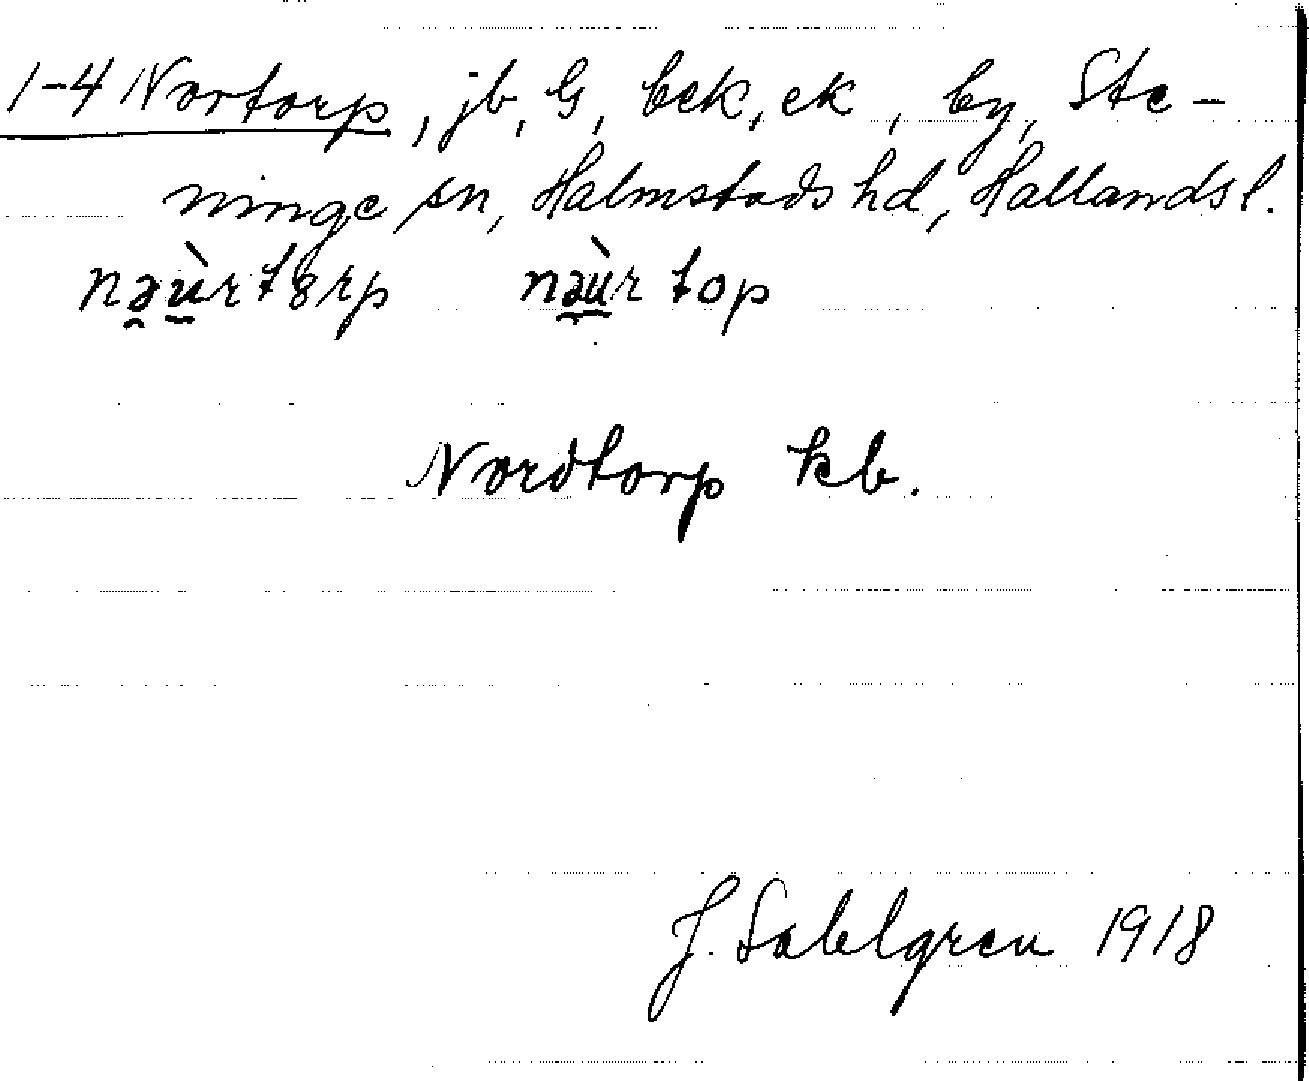 1-4 Nortorp, jb, G, bek, ek, by, Ste-
ninge sn, Halmstads hd, Hallands l.
nəu̇̀rtɵrp nəu̇̀rtop
Nordtorp kb.
J. Sahlgren 1918